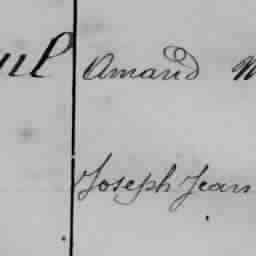 Amand
Joseph Jean